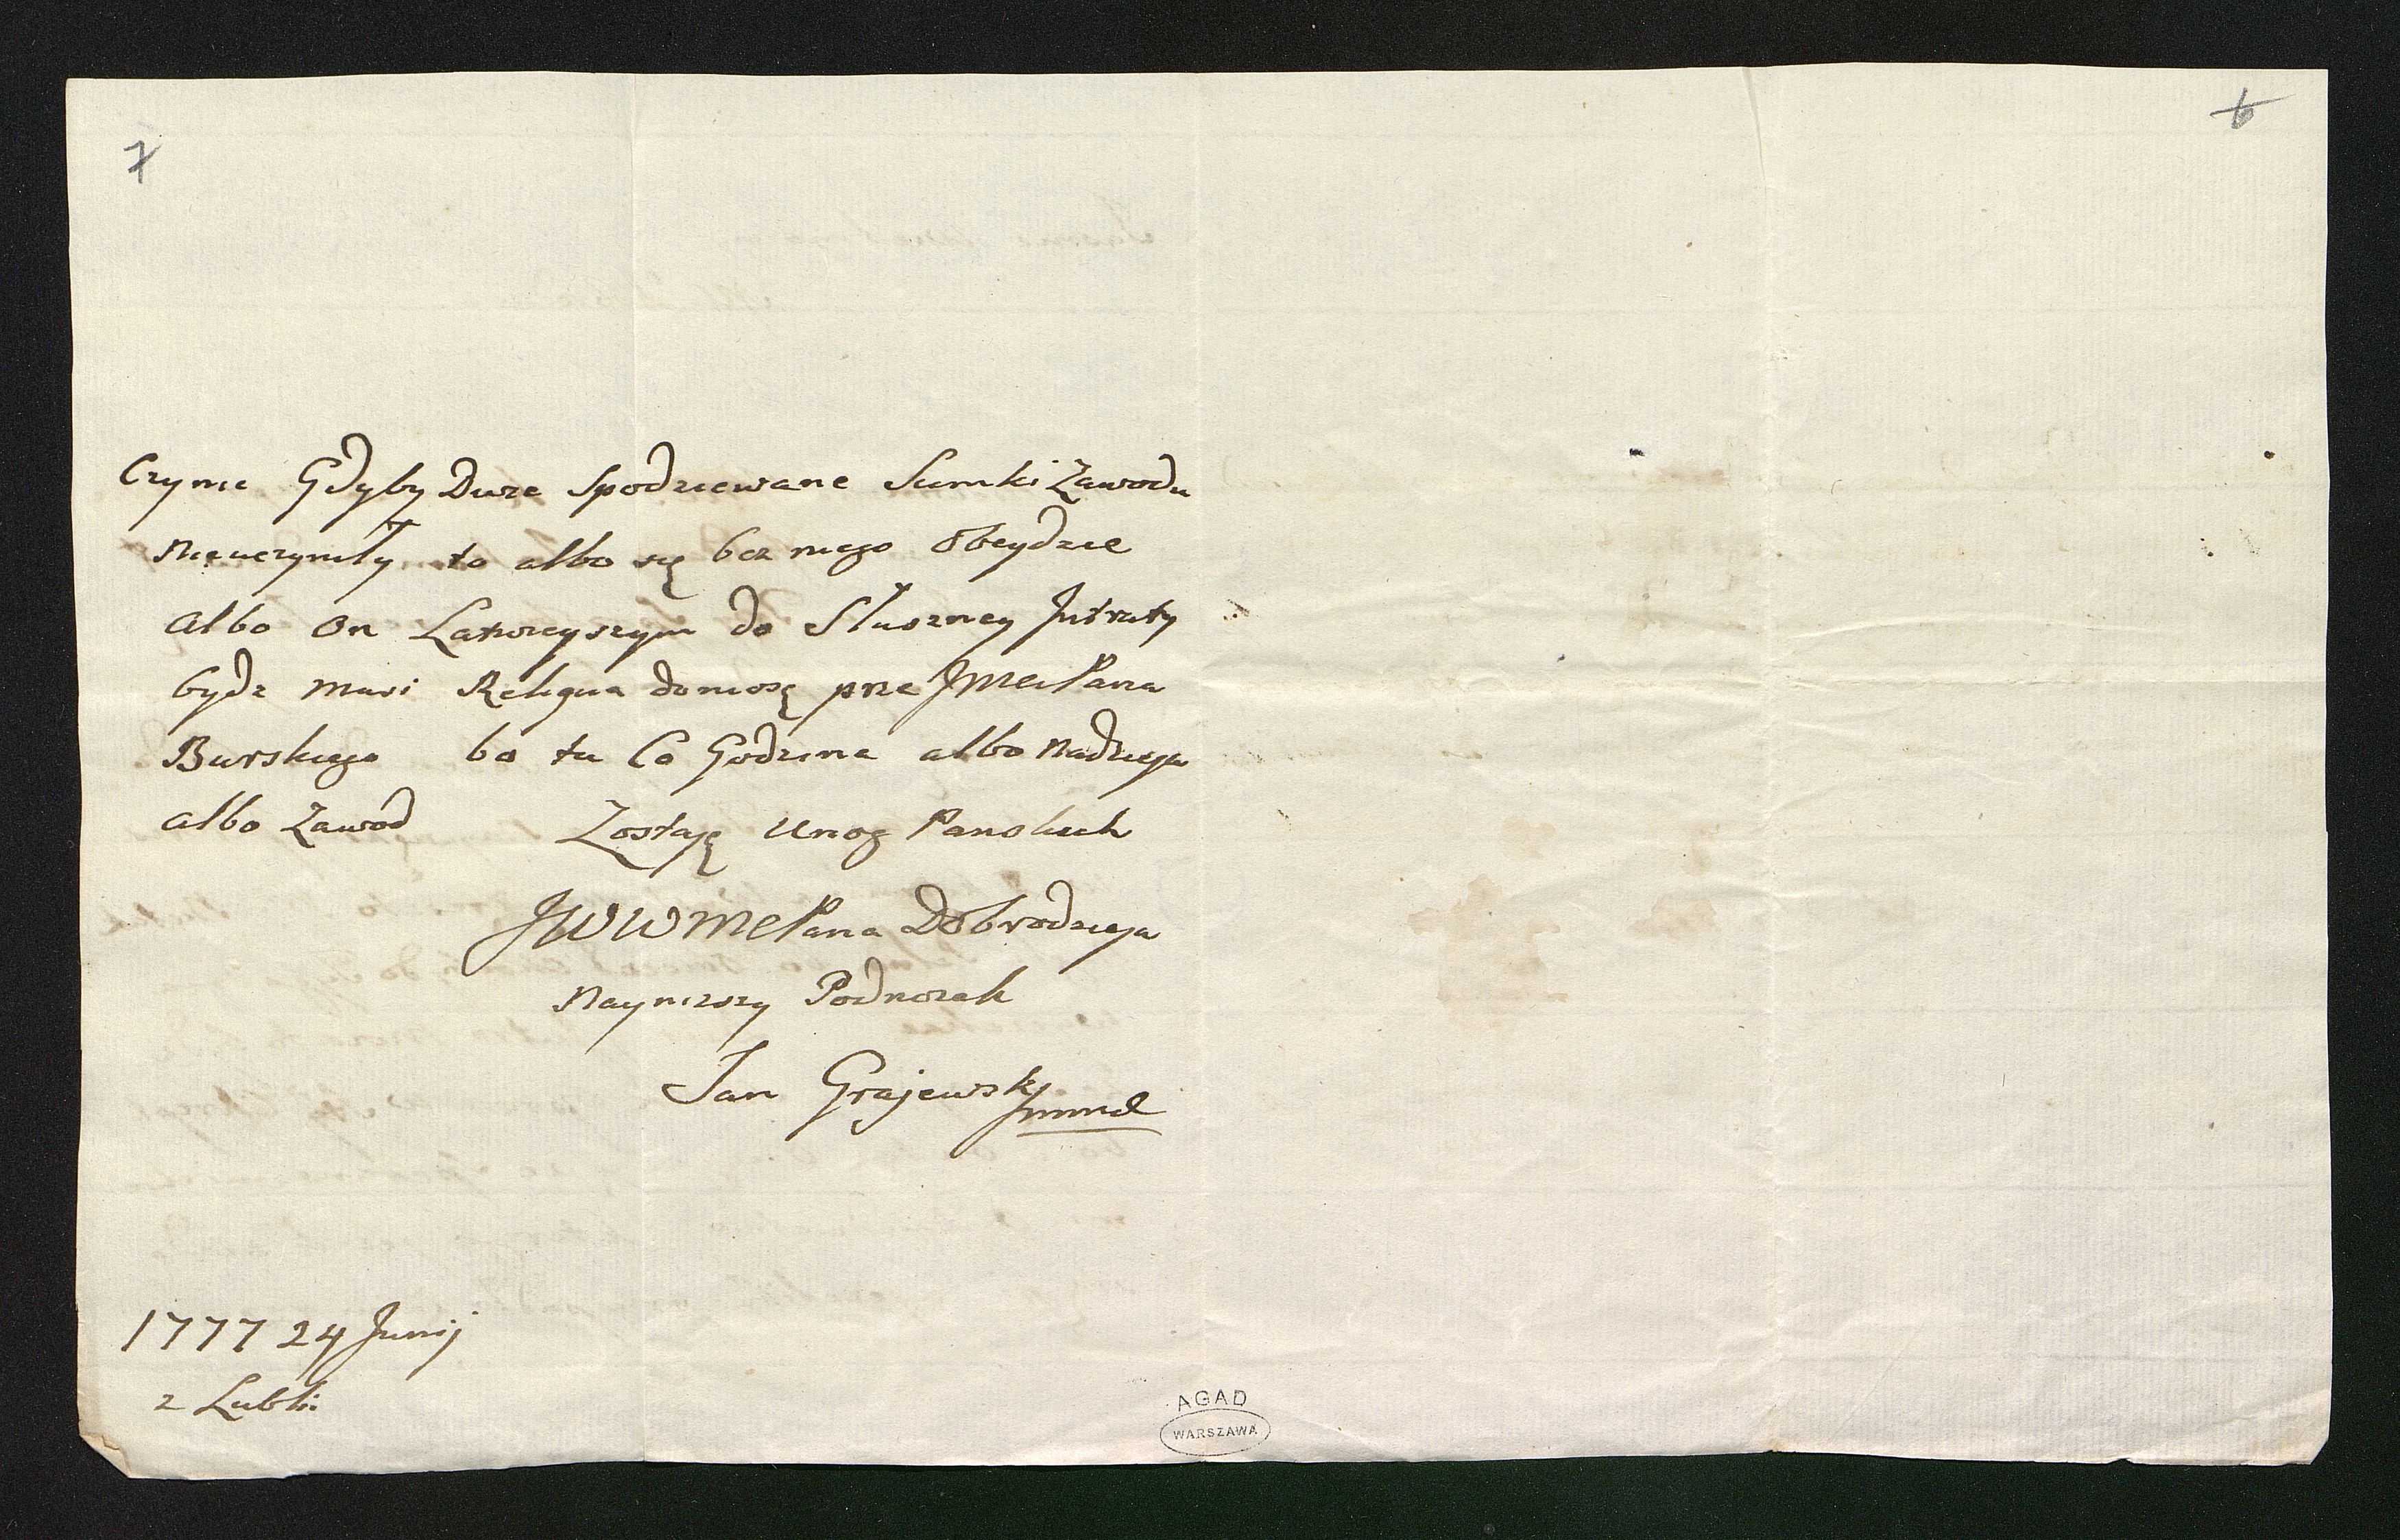 7
6
Czynie Gdyby Duze Spodziewane Sumki Zawodu
Nieuczyniły to albo się bez niego Obeydzie
albo On Łatwieyszym do Słuszney Intraty
bydz musi Reliqua doniosę prze JMci Pana
Burskiego bo tu Co Godzina albo Nadzieja
albo Zawod Zostaję Unog Panskich
JWWMCPana Dobrodzieja
Nayniższy Podnozek
Jan Grajewski
1777 24 Junij
z Lubli:
AGAD
WARSZAWA